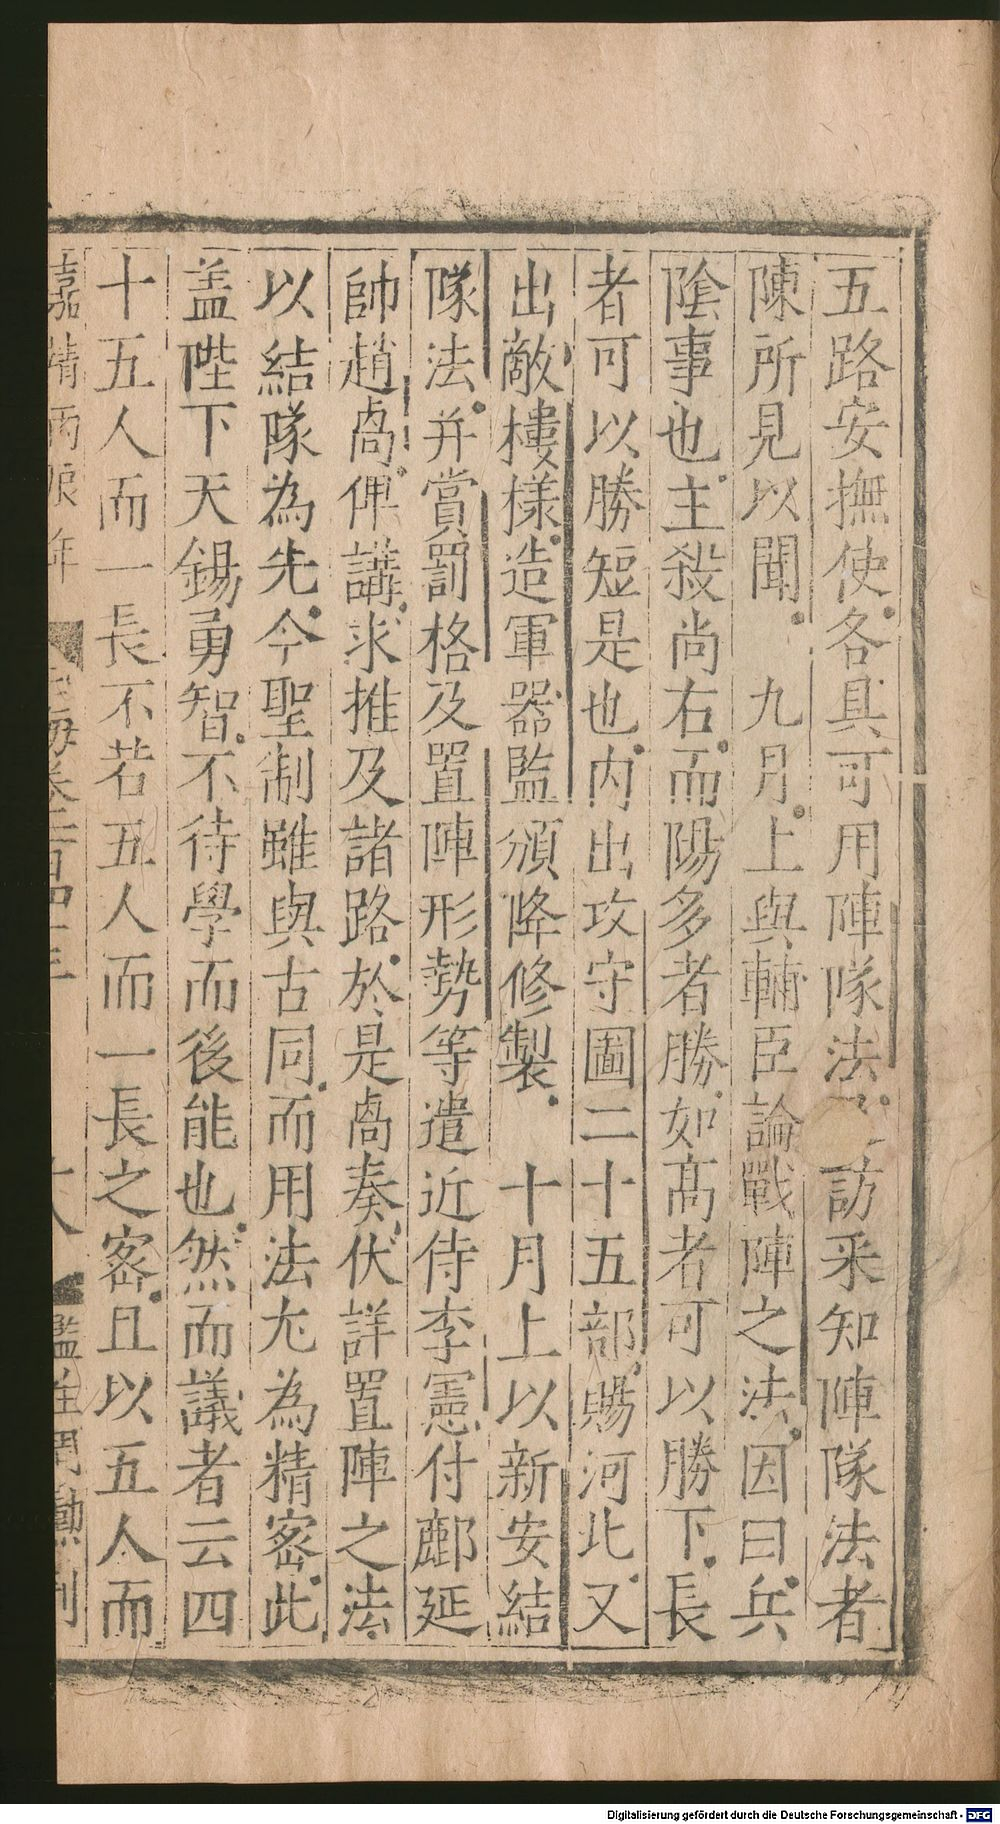 五路安撫使各具可用陣隊法訪采知陣隊法者
陳所見以聞　九月上與輔臣論戰陣之法因曰兵
陰事也主殺尚右而陽多者勝如髙者可以勝下長
者可以勝短是也内出攻守圖二十五部賜河北又
出敵樓樣造軍器監頒降修製　十月上以新安結
隊法并賞罰格及置陣形勢等遣近侍李憲付鄜延
帥趙卨俾講求推及諸路於是卨奏伏詳置陣之法
以結隊為先今聖制雖與古同而用法尤為精密此
盖陛下天錫勇智不待學而後能也然而議者云四
十五人而一長不若五人而一長之密且以五人而
嘉靖丙辰年
玉海卷一百四十三
十八
監生周
刊
Digitalisierung gefördert durch die Deutsche Forschungsgemeinschaft - DFG